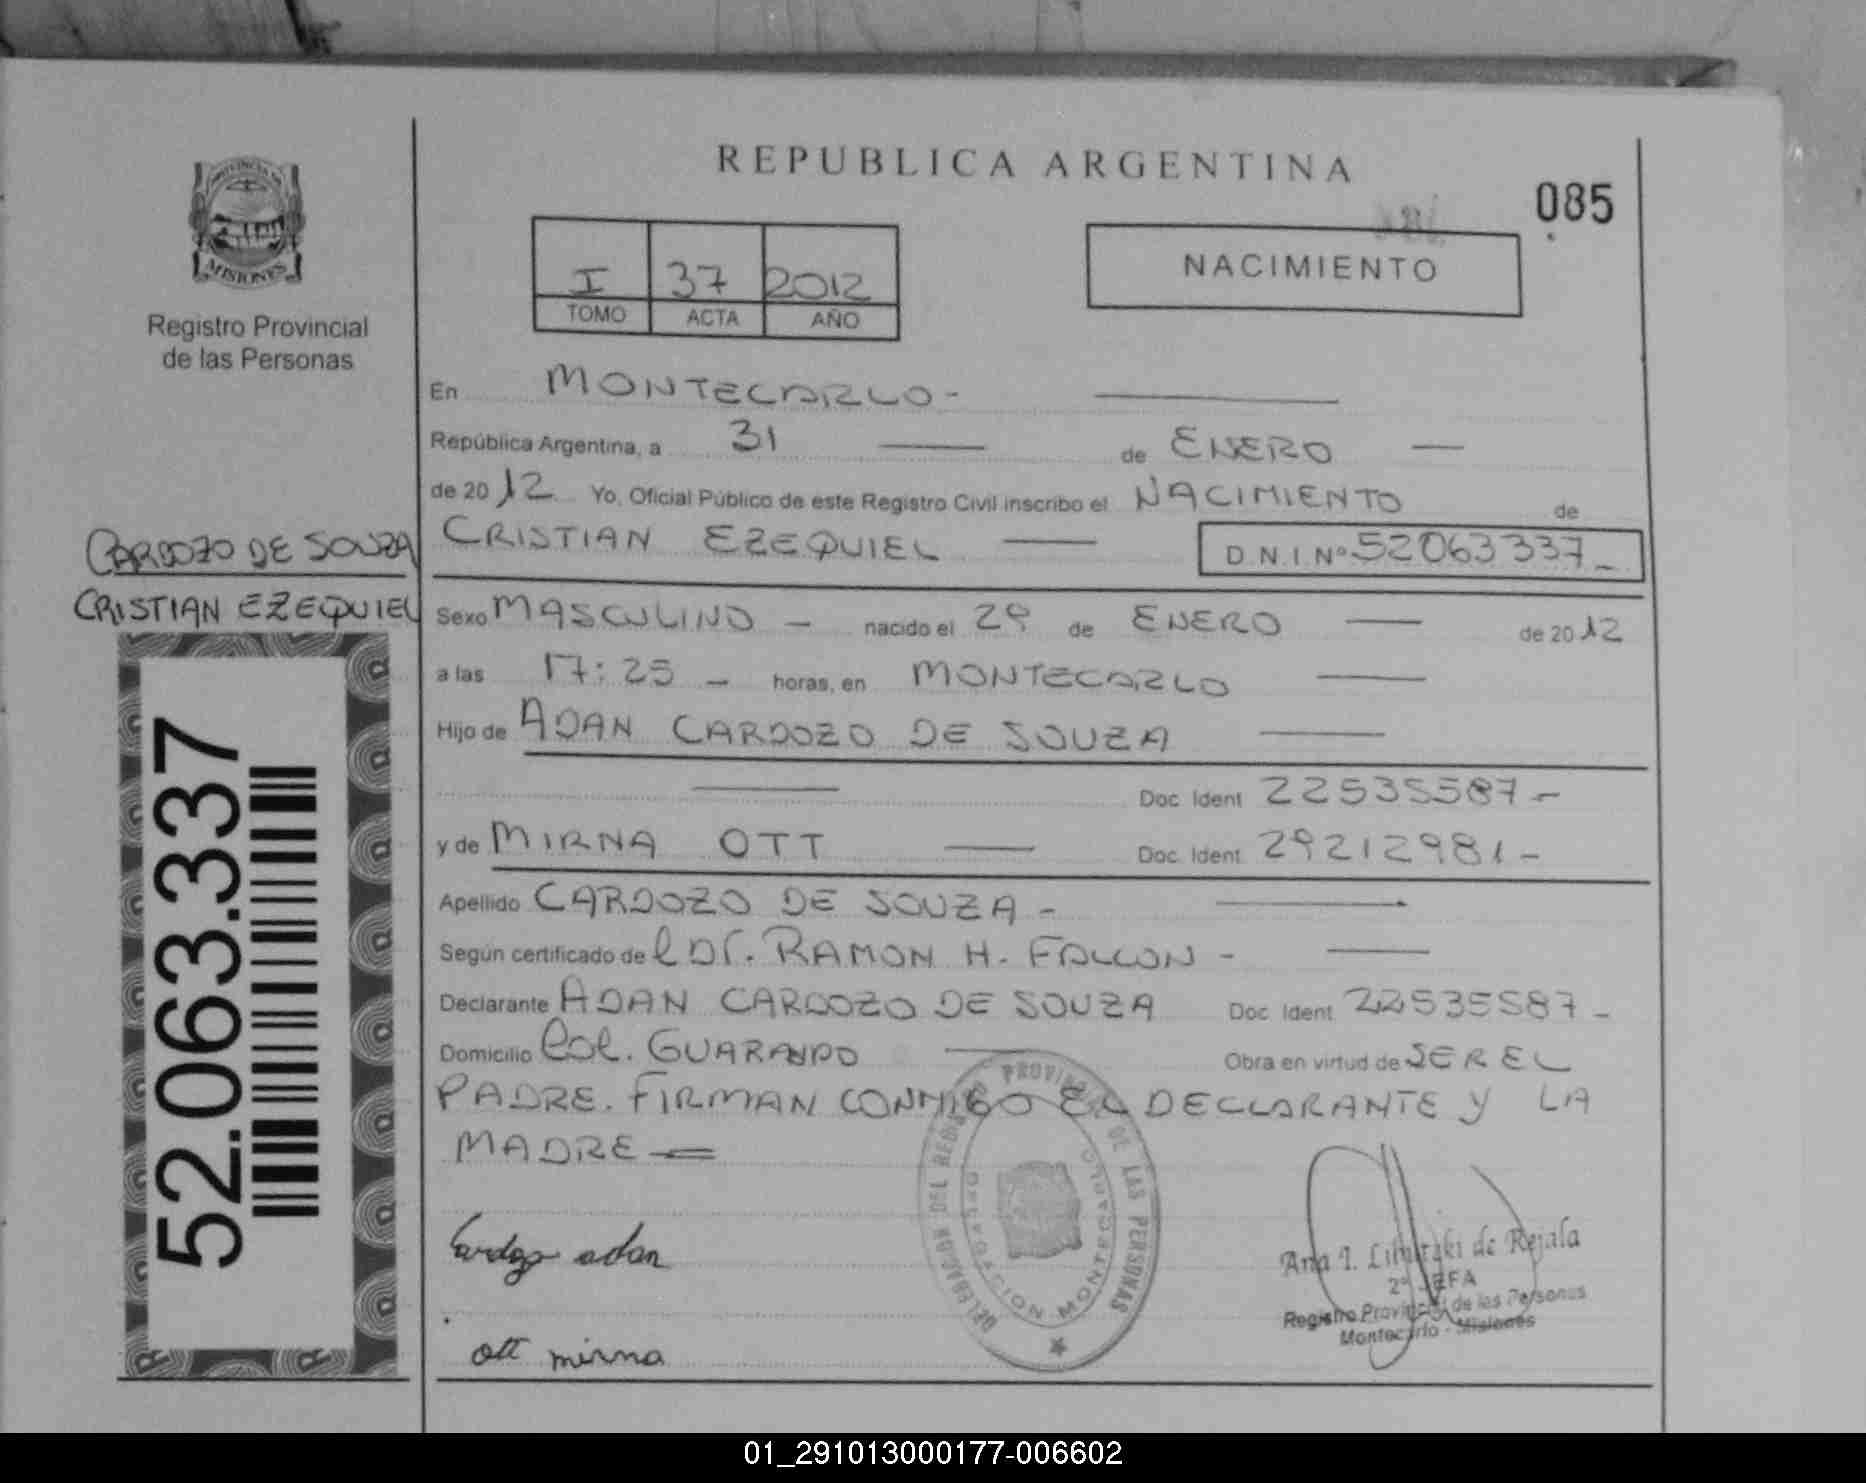 PROVINCIA DE
MISIONES
Registro Provincial
de las Personas
REPUBLICA ARGENTINA
085
I 37 2012
TOMO ACTA AÑO
NACIMIENTO
En MONTECARLO-
República Argentina, a 31 de ENERO
de 2012 Yo, Oficial Público de este Registro Civil inscribo el NACIMIENTO de
CARDOZO DE SOUZA
CRISTIAN EZEQUIEL
CRISTIAN EZEQUIEL D.N.I.Nº 52063337
Sexo MASCULINO nacido el 29 de ENERO de 2012
a las 17:25 horas, en MONTECARLO
Hijo de ADAN CARDOZO DE SOUZA
Doc. Ident. 22535587-
y de MIRNA OTT Doc. Ident. 29212981-
Apellido CARDOZO DE SOUZA-
Según certificado de l Dr. RAMON H. FALCON-
Declarante ADAN CARDOZO DE SOUZA Doc. Ident. 22535587-
Domicilio Col. GUARAYPO Obra en virtud de SER EL
PADRE. FIRMAN CONMIGO EL DECLARANTE Y LA
MADRE
52.063.337
Cardozo adan
ott mirna
DELEGACION DEL REGISTRO PROVINCIAL DE LAS PERSONAS
DELEGACION MONTECARLO
de Rejala
2º JEFA
Registro Provincial de las Personas
Montecarlo - Misiones
01_291013000177-006602